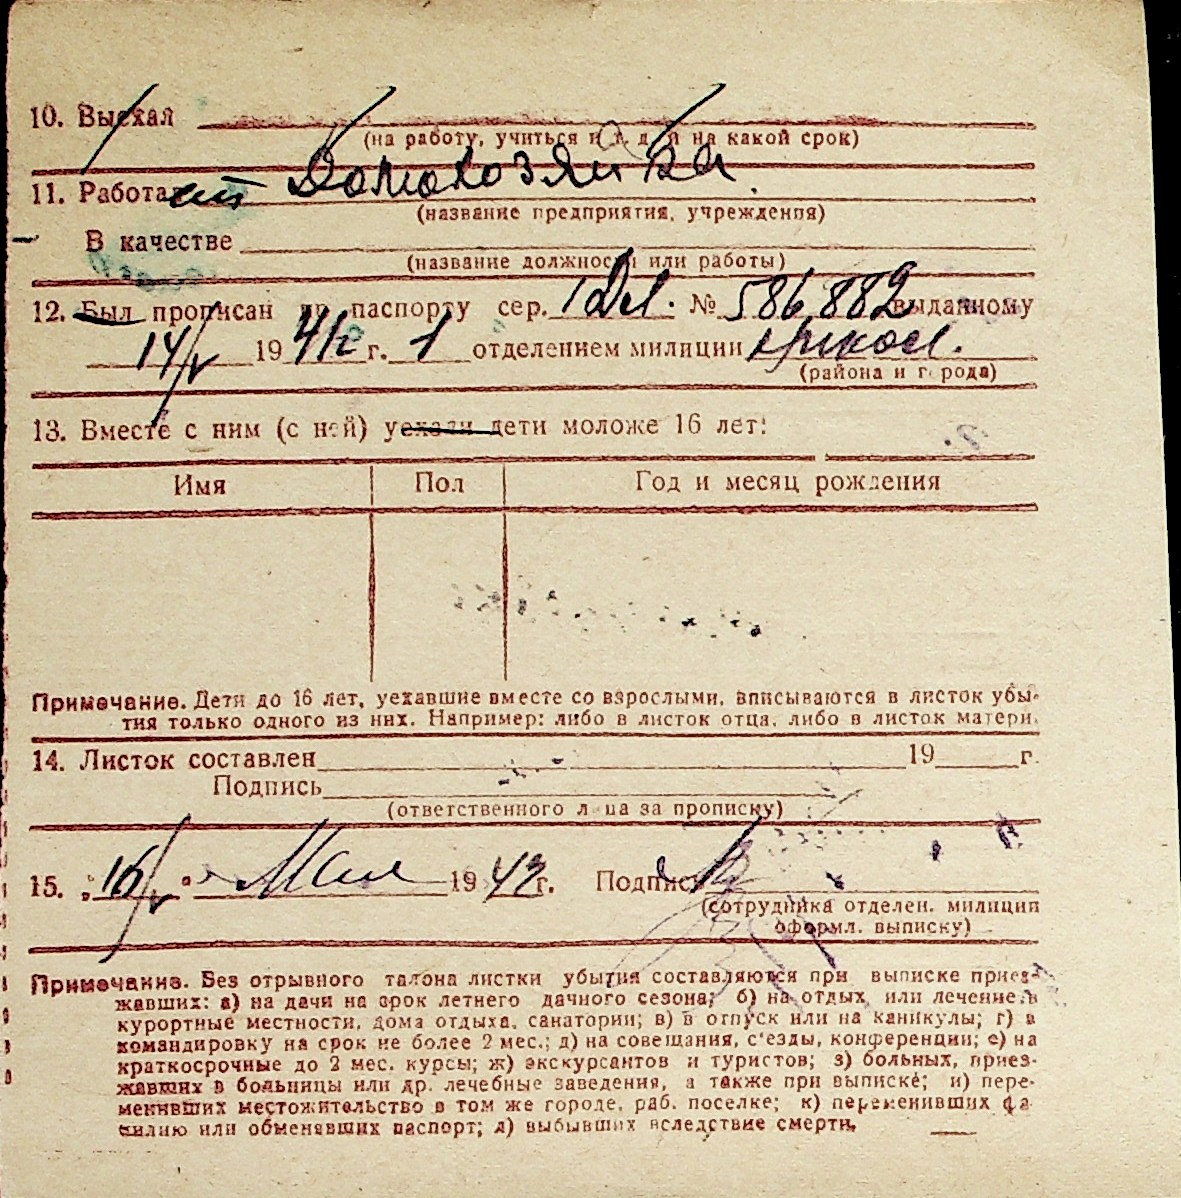 10. Выехал
(на работу, учиться и т. д. и на какой срок)
11. Работает Домохозяйка
(название предприятия, учреждения)
В качестве
(название должности или работы)
12. Был прописан по паспорту сер. № 586882 выданному
14/V 1942 г. 1 отделением милиции
(района и города)
13. Вместе с ним (с ней) уехали дети моложе 16 лет:
Имя Пол Год и месяц рождения
Примечание. Дети до 16 лет, уехавшие вместе со взрослыми, вписываются в листок убы-
тия только одного из них. Например: либо в листок отца, либо в листок матери.
14. Листок составлен 19 г.
Подпись
(ответственного лица за прописку)
15. „16/V" Мая 1942 г. Подпись
(сотрудника отделен. милиции
оформл. выписку)
Примечание. Без отрывного талона листки убытия составляются при выписке приез-
жавших: а) на дачи на срок летнего дачного сезона; б) на отдых или лечение в
курортные местности, дома отдыха, санатории; в) в отпуск или на каникулы; г) в
командировку на срок не более 2 мес.; д) на совещания, с'езды, конференции; е) на
краткосрочные до 2 мес. курсы; ж) экскурсантов и туристов; з) больных, приез-
жавших в больницы или др. лечебные заведения, а также при выписке; и) пере-
менивших местожительство в том же городе, раб. поселке; к) переменивших фа-
милию или обменявших паспорт; л) выбывших вследствие смерти.